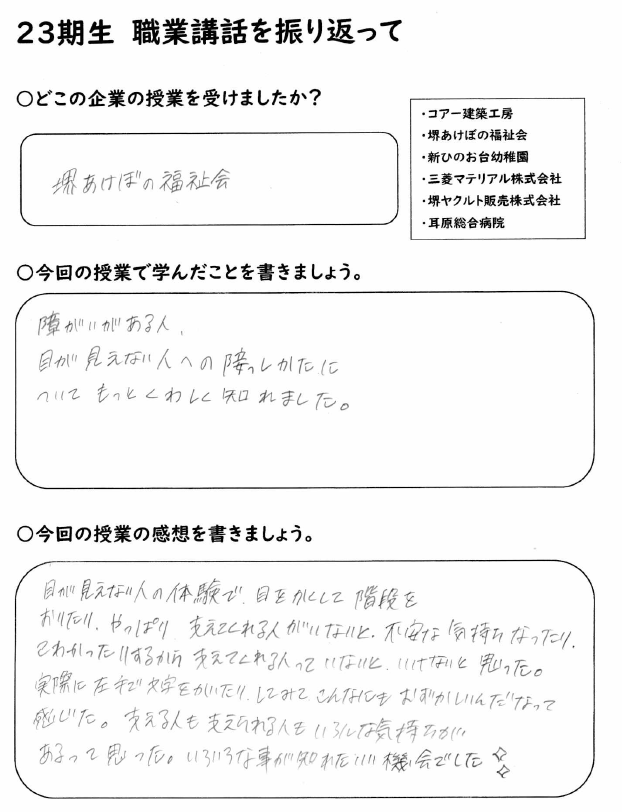 23期生 職業講話を振り返って
○どこの企業の授業を受けましたか?
堺あけぼの福祉会
・コアー建築工房
・堺あけぼの福祉会
・新ひのお台幼稚園
・三菱マテリアル株式会社
・堺ヤクルト販売株式会社
・耳原総合病院
○今回の授業で学んだことを書きましょう。
障がいがある人、
目が見えない人への接っしかたに
ついてもっとくわしく知れました。
○今回の授業の感想を書きましょう。
目が見えない人の体験で、目をかくして階段を
おりたり、やっぱり支えてくれる人がいないと、不安な気持ちなったり、
こわかったりするから支えてくれる人っていないと、いけないと思った。
実際に左手で文字をかいたり、してみてこんなにもむずかしいんだなって
感じた。支える人も支えられる人もいろんな気持ちが
あるって思った。いろいろな事が知れたいい機会でした